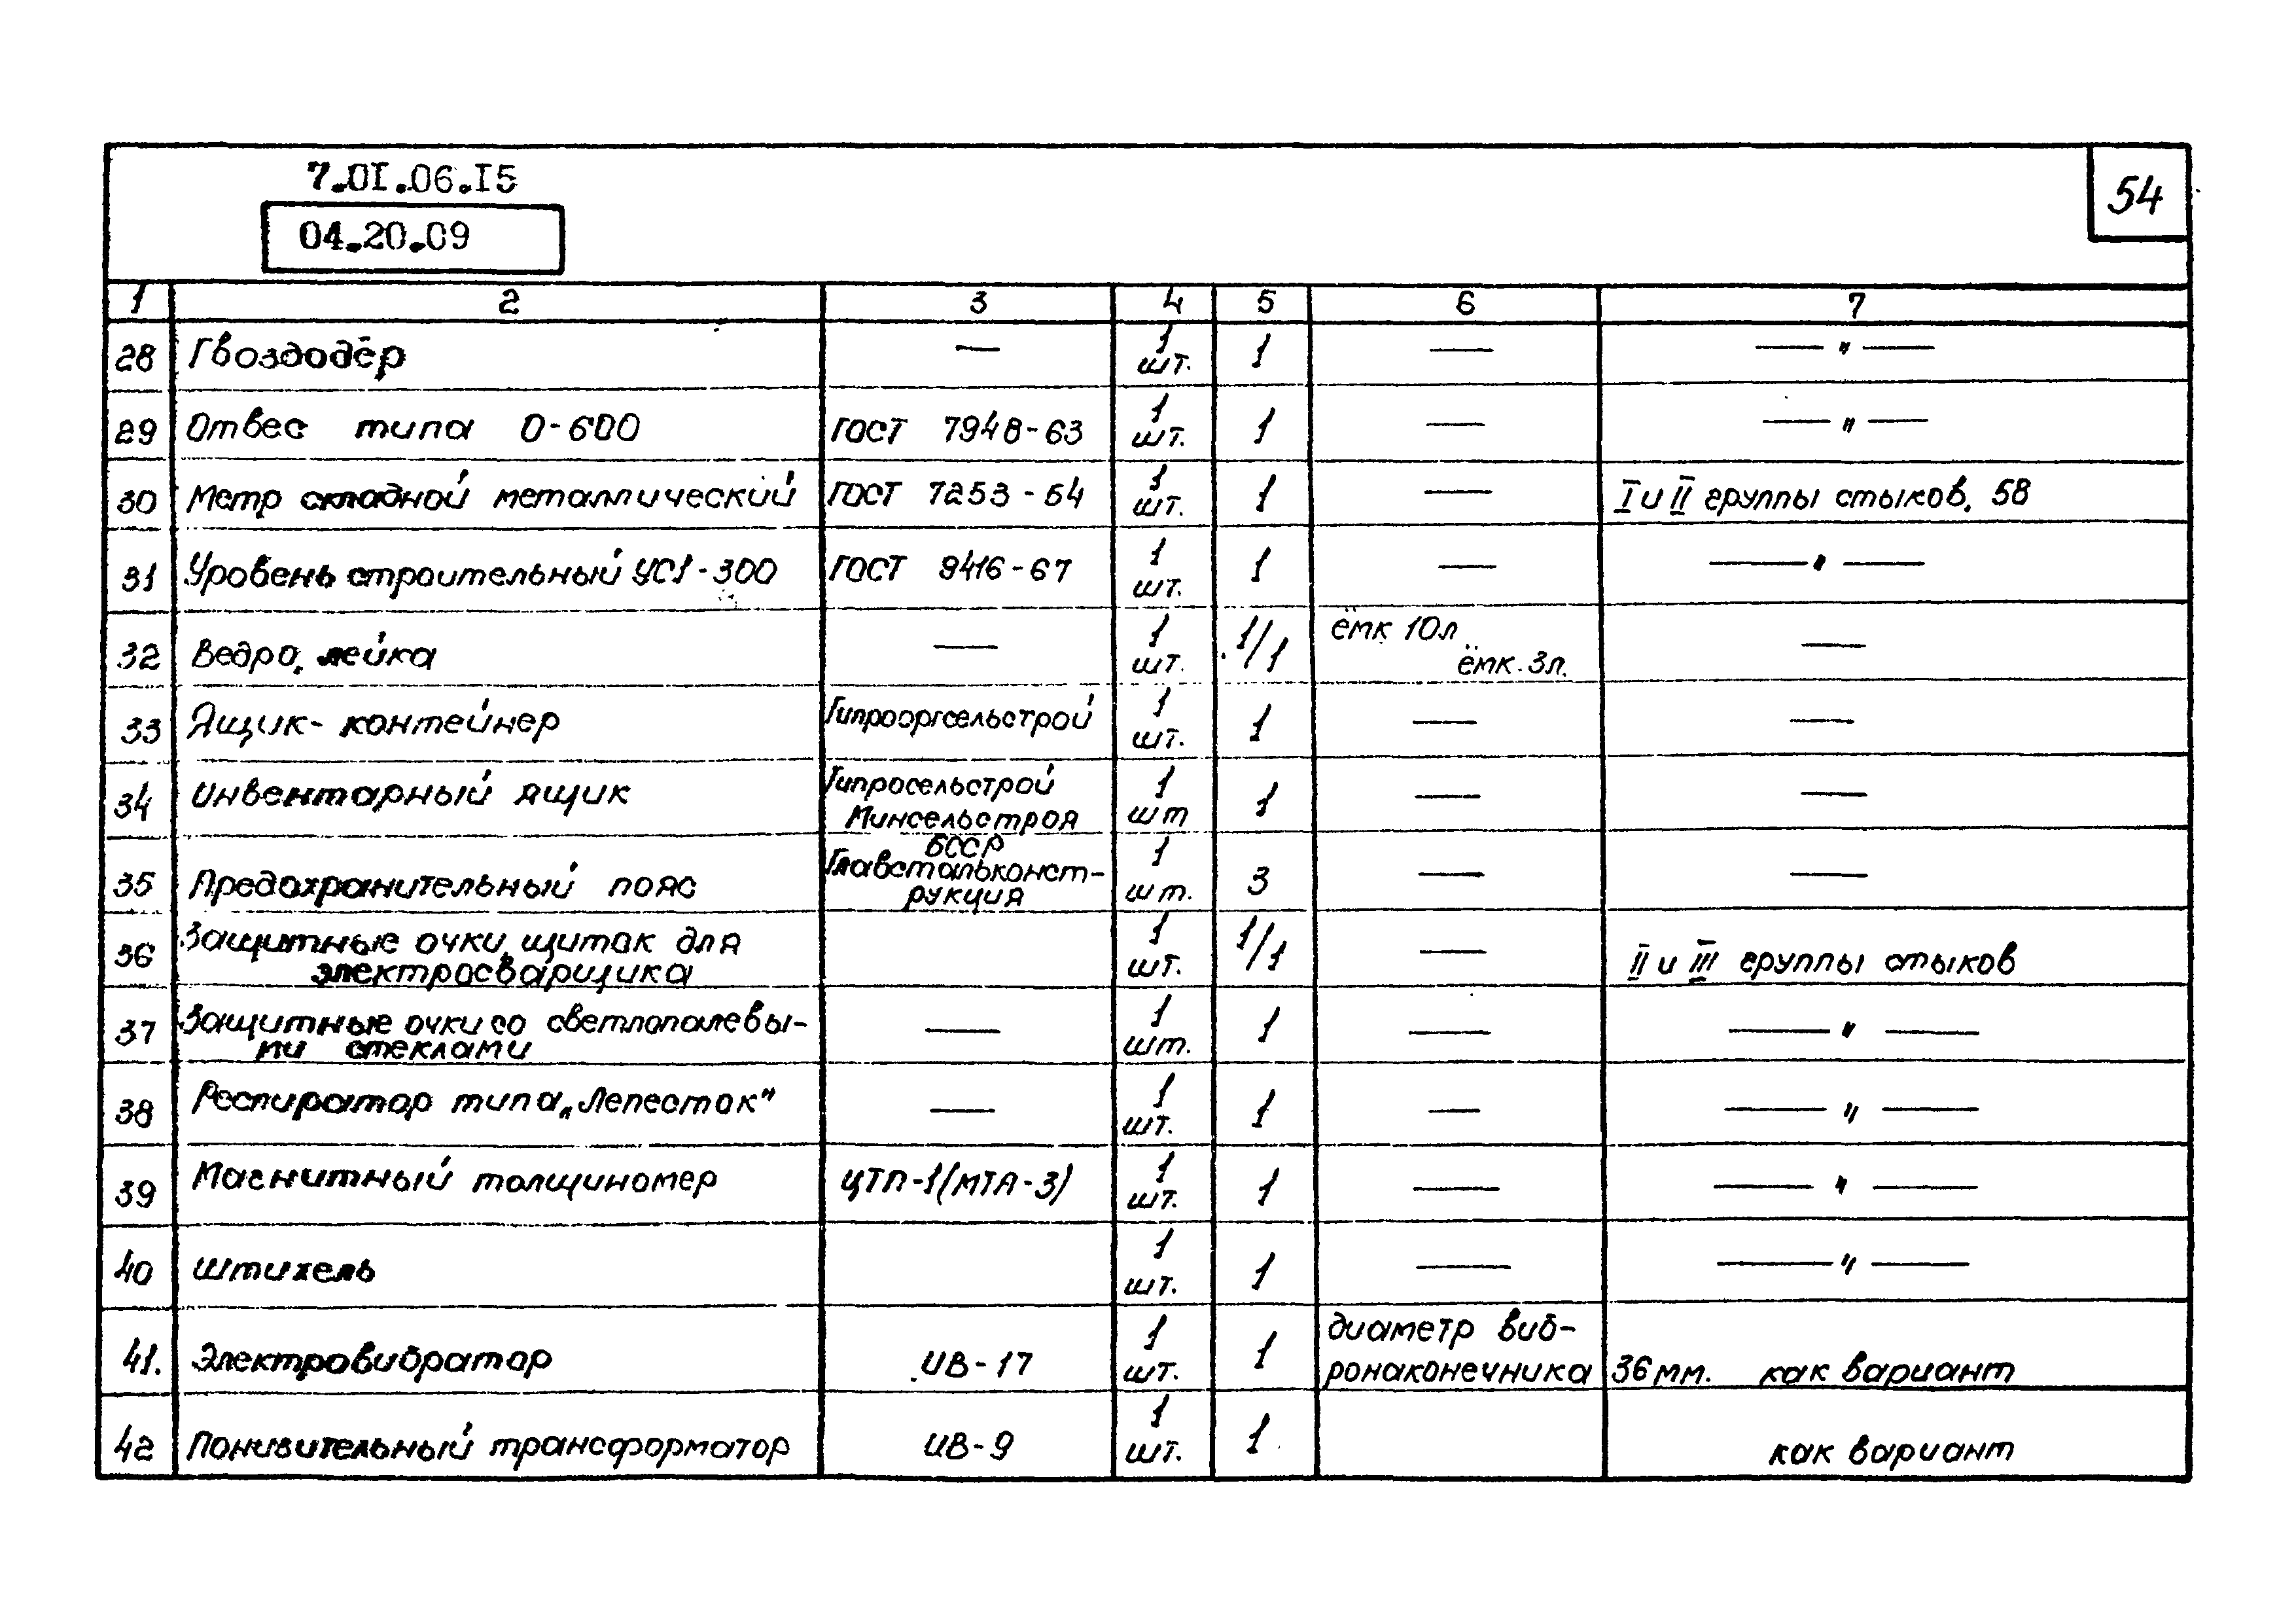 7.01.06.15
54
04.20.09
1 2 3 4 5 6 7
28 Гвоздодёр — 1 шт. 1 — — " —
29 Отвес типа О-600 ГОСТ 7948-63 1 шт. 1 — — " —
30 Метр складной металлический ГОСТ 7253-54 1 шт. 1 — I и II группы стыков, 58
31 Уровень строительный УС1-300 ГОСТ 9416-67 1 шт. 1 — — " —
32 Ведро, лейка — 1 шт. 1/1 ёмк 10л ёмк. 3л. —
33 Ящик-контейнер Гипрооргсельстрой 1 шт. 1 — —
34 Инвентарный ящик Гипросельстрой 1 шт 1 — —
Минсельстроя
БССР
35 Предохранительный пояс Главстальконст- 1 шт. 3 — —
рукция
36 Защитные очки, щиток для 1 шт. 1/1 — II и III группы стыков
электросварщика
37 Защитные очки со светлопалевы- — 1 шт. 1 — — " —
ми стеклами
38 Респиратор типа „Лепесток" — 1 шт. 1 — — " —
39 Магнитный толщиномер ЦТП-1(МТА-3) 1 шт. 1 — — " —
40 Штихель 1 шт. 1 — — " —
41. Электровибратор ИВ-17 1 шт. 1 диаметр виб-
ронаконечника 36мм. как вариант
42 Понизительный трансформатор ИВ-9 1 шт. 1 как вариант